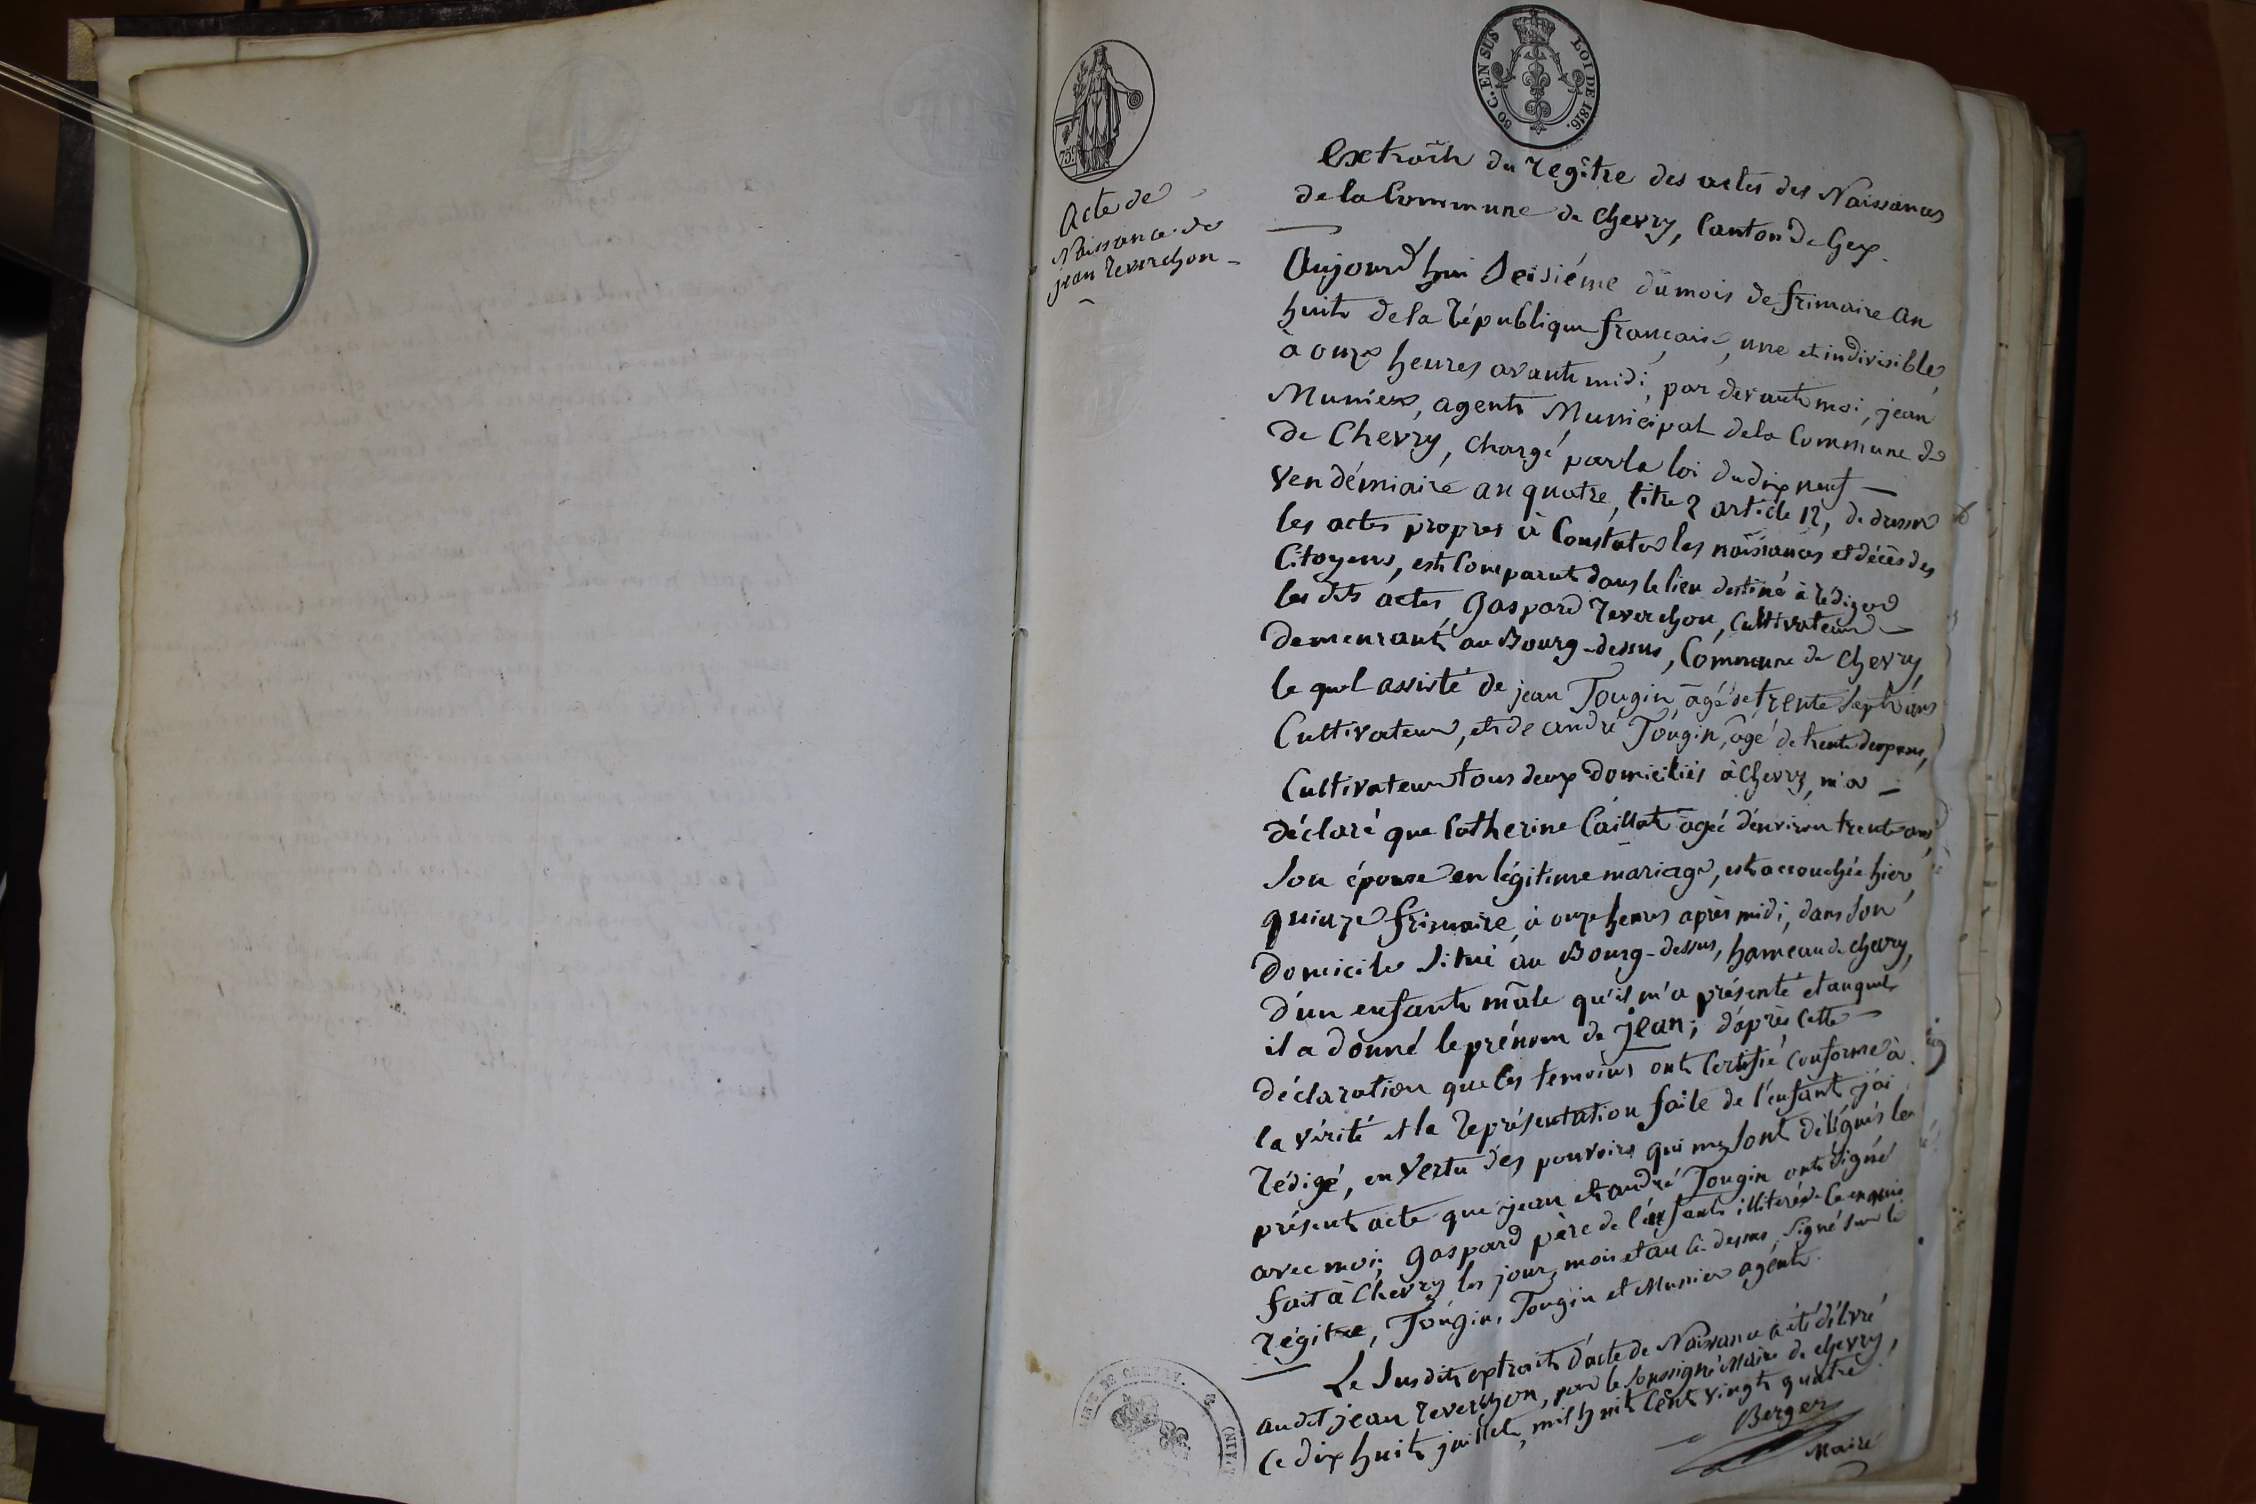 60 C. EN SUS
LOI DE 1816.
759
Acte de
Naissance de
jean Reverchon
Extrait du régître des actes des Naissances
de la Commune de Chevry, Canton de Gex.
Aujourd'hui Seisiéme du mois de frimaire an
huit de la République française, une et indivisible,
à onze heures avant midi, par devant moi, jean
Munier, agent Municipal de la Commune de
de Chevry, chargé par la loi du dix neuf
Vendémiaire an quatre, titre 2 article 12, de dresser
les actes propres à Constater les naissances et décès des
Citoyens, est Comparut dans le lieu destiné à rédiger
les dits actes, Gaspard Reverchon, Cultivateur
demeurant au Bourg-dessus, Commune de Chevry,
le quel assisté de jean Tougin, âgé de trente sept ans
Cultivateur, et de andré Tougin, âgé de trente deux ans,
Cultivateur tous deux domiciliés à Chevry, m'a
déclaré que Catherine Caillat âgée d'environ trente ans,
Son épouse en légitime mariage, est accouchée hier,
quinze frimaire, à onze heures après midi, dans Son
domicile Situé au Bourg-dessus, hameau de chevry,
d'un enfant mâle qu'il m'a présenté et auquel
il a donné le prénom de jean; d'après cette
déclaration que les temoins ont Certifié conforme à
la vérité et la représentation faite de l'enfant, j'ai
rédigé, en Vertu des pouvoirs qui me sont délégués le
présent acte que jean et andré Tougin ont Signé
avec moi; Gaspard père de l'enfant illiteré de ce enquis
fait à Chevry les jour, mois et an ci-dessus, Signé Sur le
régitre, Tougin, Tougin et Munier agent.
Le Susdit extrait d'acte de Naissance a été délivré
audit jean Reverchon, par le Soussigné Maire de chevry,
Ce dix huit juillet, mil huit Cent vingt quatre
Berger
Maire
(AIN)